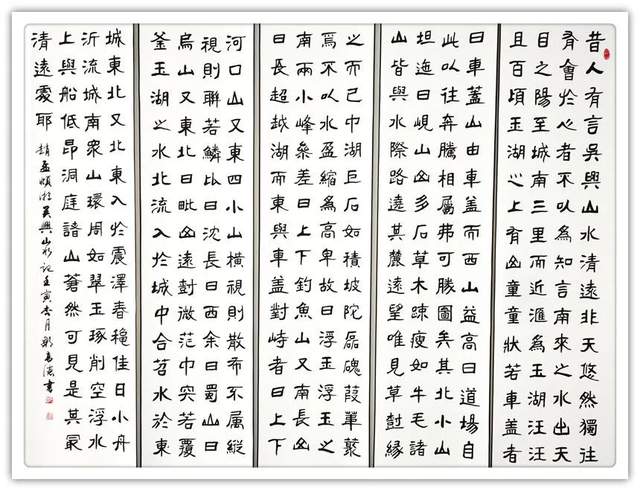 昔人有言吳興山水清遠非天悠然獨往
有會於心者不以為知言南來之水出天
目之陽至城南三里而近匯為玉湖汪汪
且百頃玉湖之上有山童童狀若車蓋者
曰車蓋山由車蓋而西山益高曰道場自
此以往奔騰相屬弗可勝圖矣其北小山
坦迤曰峴山山多石草木疎瘦如牛毛諸
山皆與水際路遶其麓遠望唯見草樹緣
之而已中湖巨石如積坡陀磊磈葭葦叢
焉不以水盈縮為高卑故曰浮玉山之
南兩小峰參差曰上下釣魚山又南長
曰長超越湖南東與車蓋對峙者曰上下
河口山又東四小山橫視則散布不屬縱
視則聯若鱗比曰沈長曰西余曰蜀山曰
烏山又東北曰毗山遠樹微茫中突若覆
釜玉湖之水北流入於城中合苕水於東
城東北又北東入於震澤春穐佳日小舟
沂流城南衆山環周如翠玉琢削空浮水
上與船低昂洞庭諸山蒼然可見是其最
清遠處耶 趙孟頫游吳興山水記壬寅杏月 書